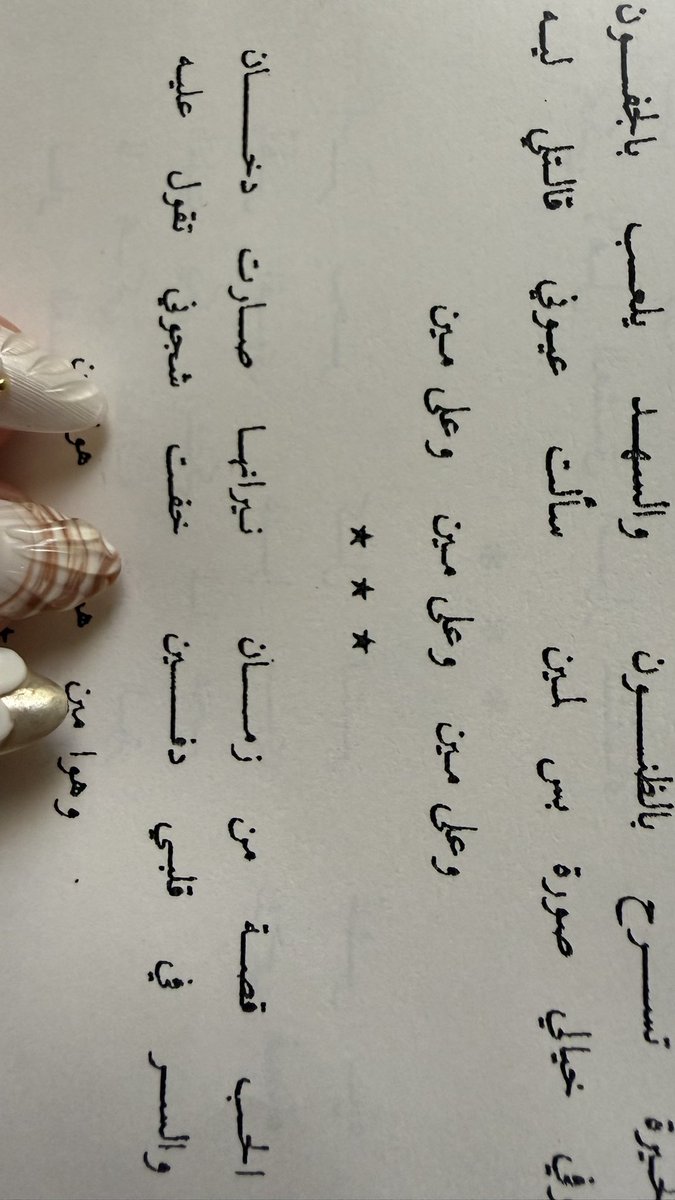 تسرح بالظنون والسهد يلعب بالجفون
خيالي صورة بس لمين سألت عيوني قالتلي ليه
وعلى مين وعلى مين وعلى مين
★ ★ ★
الحب قصة من زمان نيرانها صارت دخان
والسر في قلبي دفين خفت شجوني تقول عليه
وهوا مين